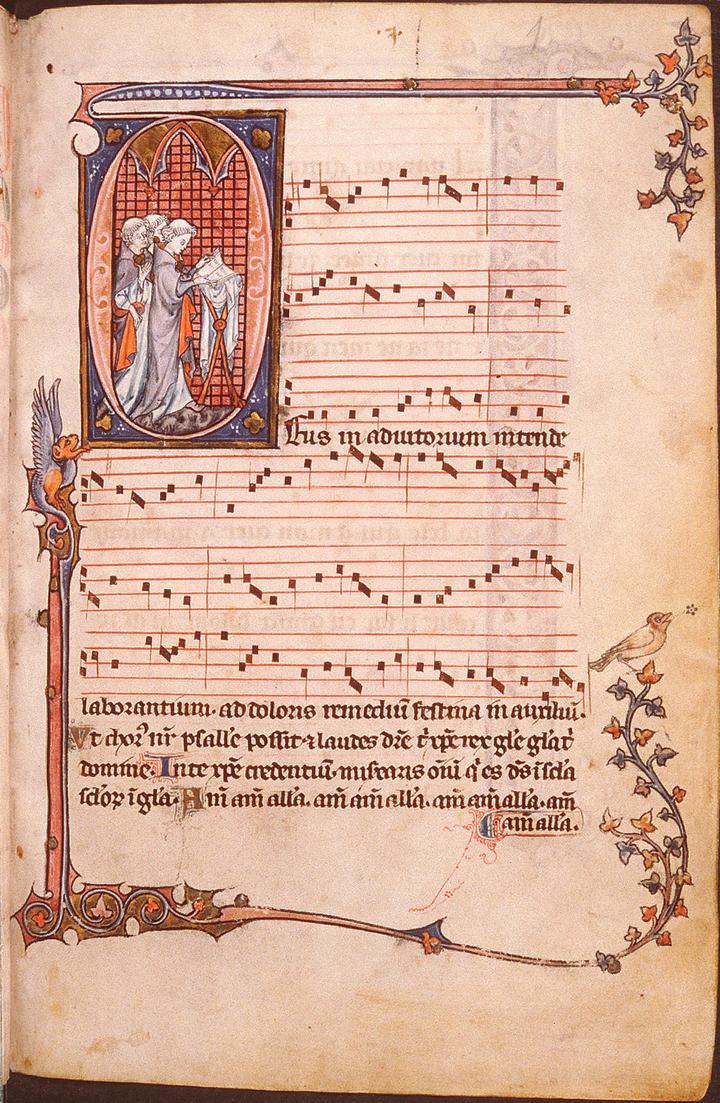 Deus in adiutorium intende
laborantium. ad doloris remediū festina in auxiliū.
Vt chorꝰ nr̄ psall'e possit ⁊ laudes dr̄e t̄ xp̄e rex gl̄e gl̄a t'
domine. In te xp̄e credentiū. mis'earis oīū q̄ es ds̄ ī scl̄a
scl̄oꝝ ī gl̄a. Am̄ am̄ all̄a. am̄ am̄ all̄a. am̄ am̄ all̄a. am̄
am̄ all̄a.